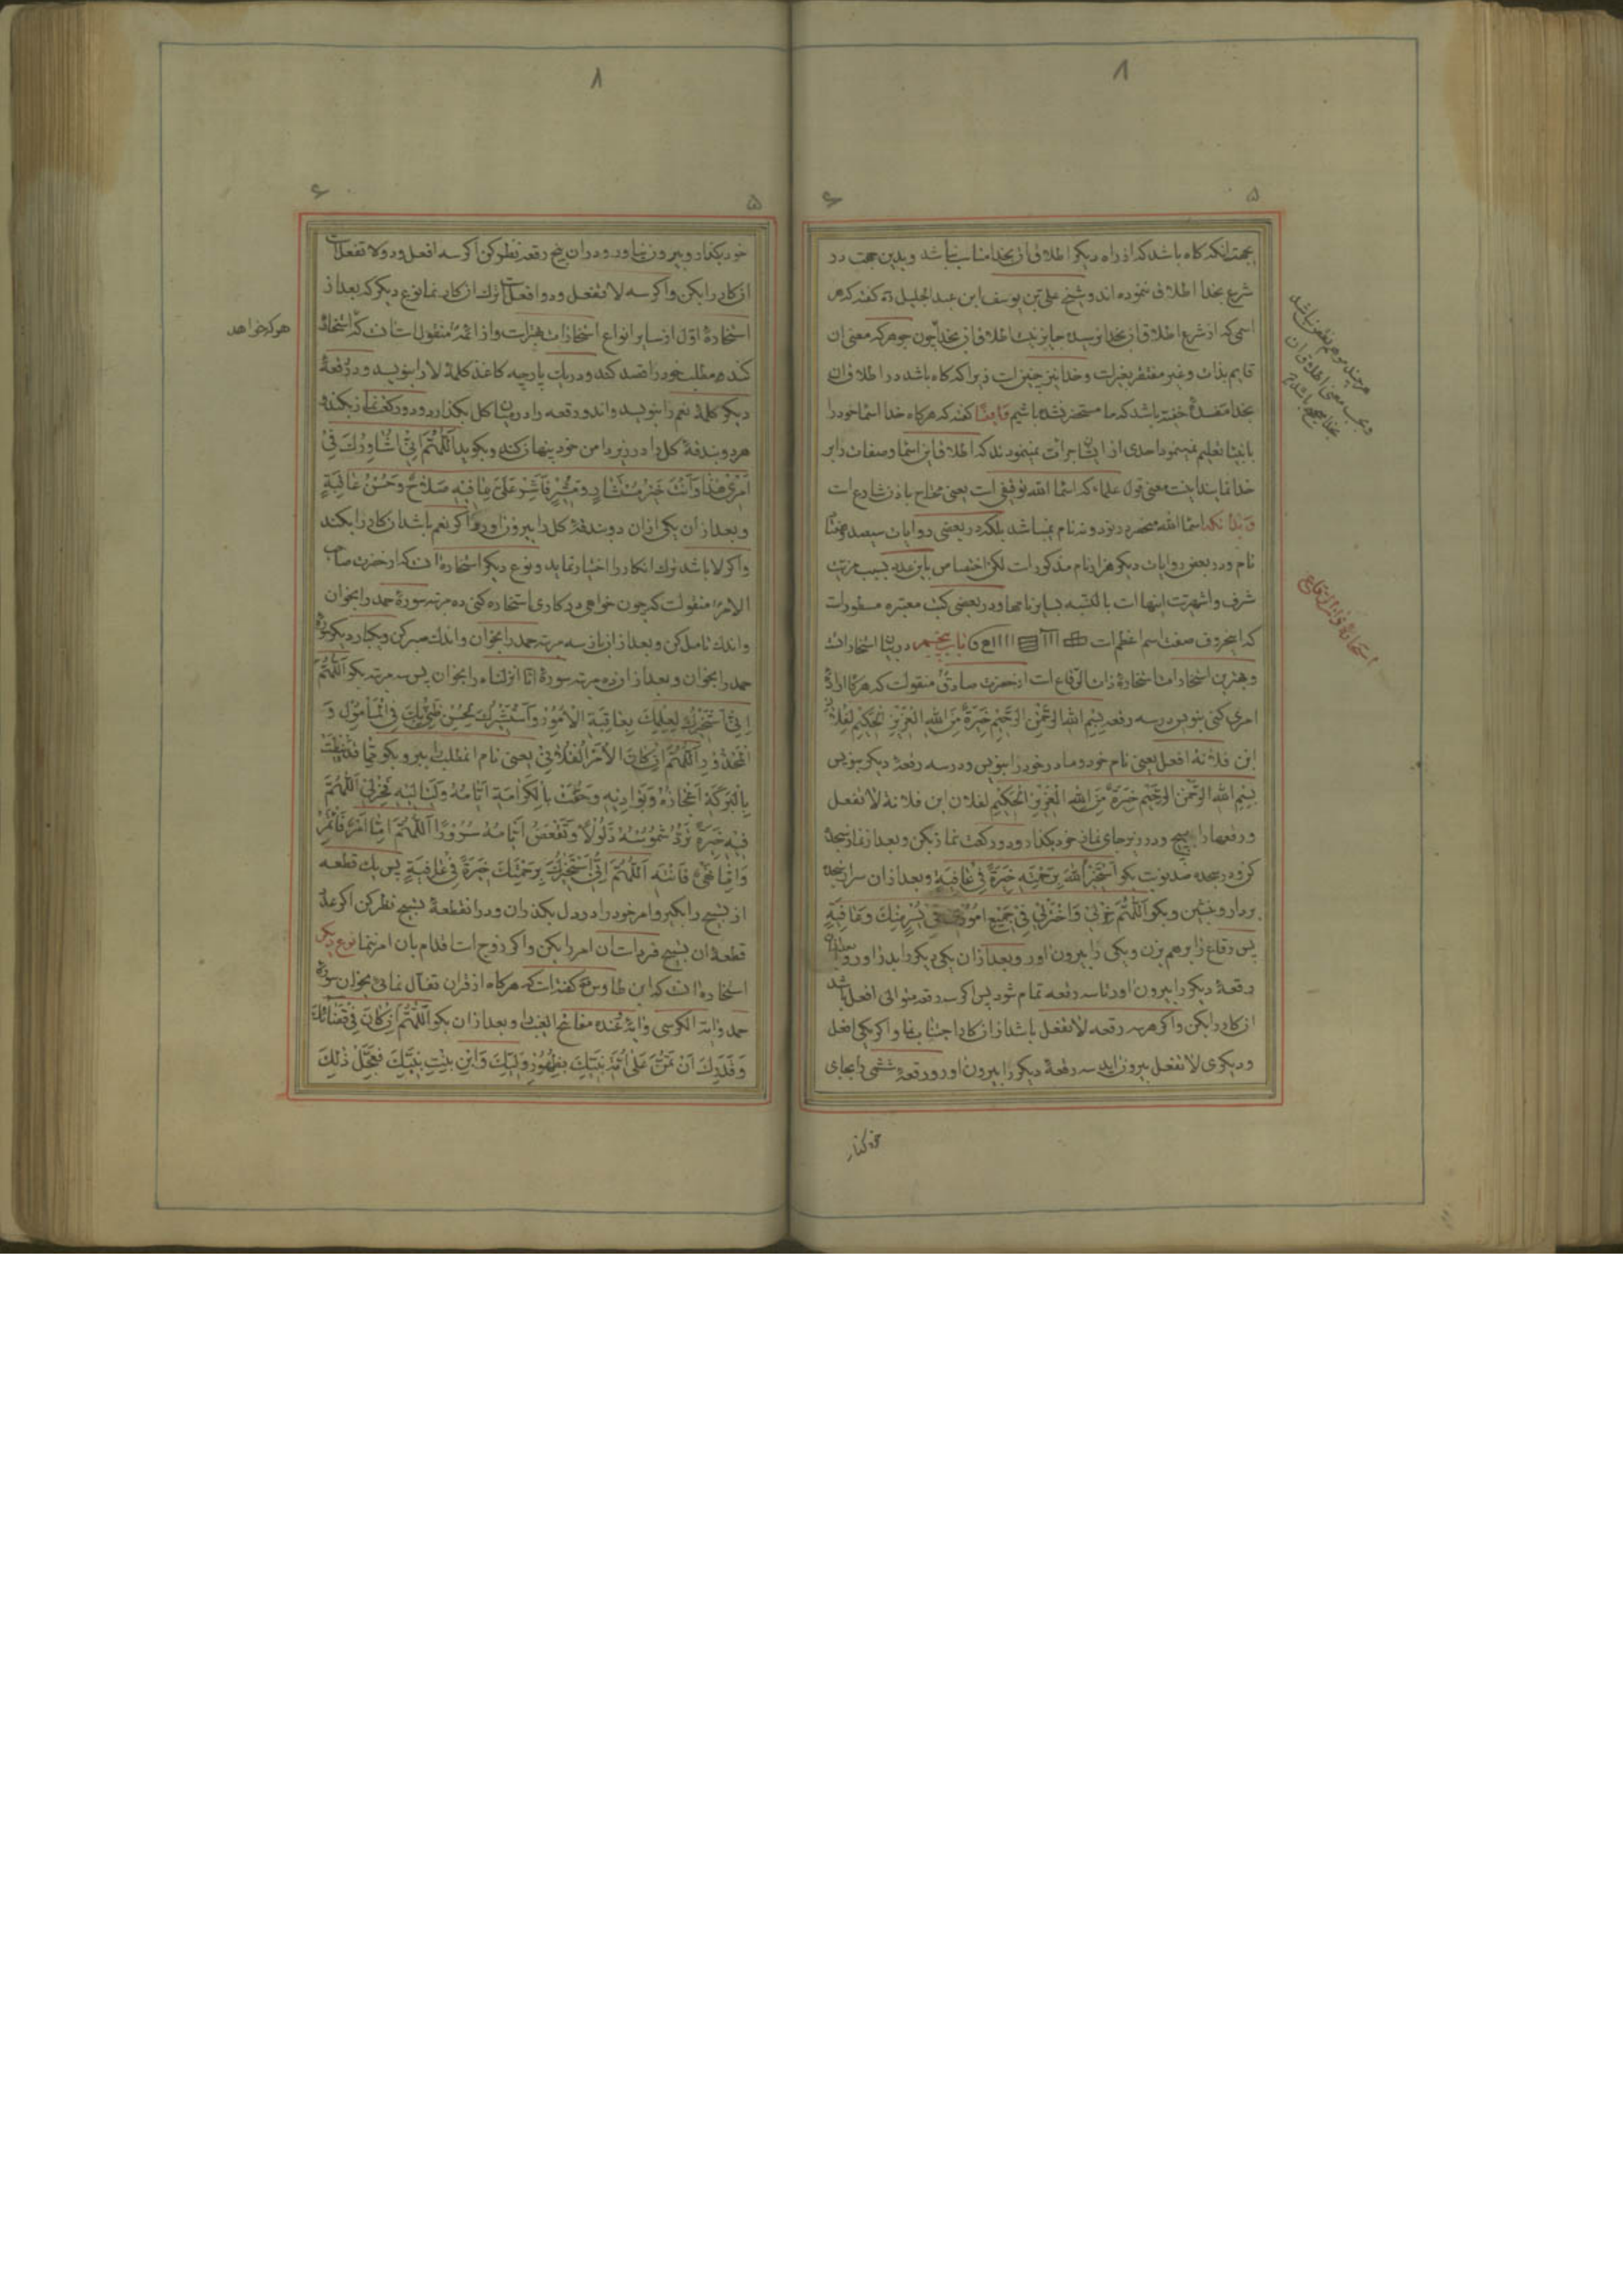 ۸
۵
۶
بجهة انکه کاه باشد که از راه دیکر اطلاق ان بخدا مناسب نباشد و بدین جهت در
شرع بخدا اطلاق ننموده اند و شیخ علی بن یوسف ابن عبد الجلیل ره کفته که هر
اسمی که از شرع اطلاق ان بخدا نرسیده جایز نیست اطلاق ان بخدا چون جوهر که معنی ان
قایم بذات و غیر مفتقر بغیر است و خدا نیز چنین است زیرا که کاه باشد در اطلاق ان
بخدا مفسدهٔ خفیه باشد که ما مستحضر نشده باشیم کفته که هرکاه خدا اسماء خود را
بانبیا تعلیم نمینمود احدی از ایشان جرات نمینمودند که اطلاق این اسما و صفات را بر
خدا نمایند اینست معنی قول علماء که اسماء الله توقیفی است یعنی محتاج باذن شارع است
و بدانکه اسماء الله منحصر در نود و نه نام نمیباشد بلکه در بعضی روایات سیصد و
نام و در بعضی روایات دیکر هزار نام مذکور است لکن اختصاص باین عدد بسبب مزیت
شرف و اشهریت اینها است بالنسبه بسایر نامها و در بعضی کتب معتبره مسطور است
که این حروف صفت اسم اعظم است باب پنجم در بیان استخارات
و بهترین استخارات استخارهٔ ذات الرقاع است از حضرت صادق منقولست که هرکاه ارادهٔ
امری کنی بنویس در سه رقعه بِسْمِ اللهِ الرَّحْمٰنِ الرَّحِیْمِ خِیَرَةٌ مِنَ اللهِ الْعَزِیْزِ الْحَکِیْمِ لفلان
ابن فلانة افعل یعنی نام خود و مادر خود را بنویس و در سه رقعهٔ دیکر بنویس
بِسْمِ اللهِ الرَّحْمٰنِ الرَّحِیْمِ خِیَرَةٌ مِنَ اللهِ الْعَزِیْزِ الْحَکِیْمِ لفلان ابن فلانة لا تفعل
و رقعها را بپیچ و در زیر جای نماز خود بکذار و دو رکعت نماز بکن و بعد از نماز سجده
کن و در سجده صد نوبت بکو اَسْتَخِیْرُ اللهَ بِرَحْمَتِهِ خِیَرَةً فِی عَافِیَةٍ و بعد از ان سر از سجده
بردار و بنشین و بکو اَللّٰهُمَّ خِرْ لِیْ وَاخْتَرْ لِیْ فِیْ جَمِیْعِ اُمُوْرِیْ فِیْ یُسْرٍ مِنْكَ وَعَافِیَةٍ
پس رقاع را بر هم بزن و یکی را بیرون اور و بعد از ان یکی دیکر را بدر اور و بعد از ان
رقعهٔ دیکر را بیرون اور تا سه رقعه تمام شود پس اکر سه رقعه متوالی افعل باشد
ان کار را بکن و اکر هر سه رقعه لا تفعل باشد از ان کار اجتناب نما و اکر یکی افعل
و دیکری لا تفعل بیرون اید سه رقعهٔ دیکر را بیرون اور و رقعهٔ ششمی را بجای
استخارهٔ ذات الرقاع
خود بکذار
۸
۵
۶
خود بکذار و بیرون میاور و در ان پنج رقعه نظر کن اکر سه افعل و دو لا تفعل است
ان کار را بکن و اکر سه لا تفعل و دو افعل است ترك ان کار نما نوع دیکر که بعد از
استخارهٔ اول از سایر انواع استخارات بهتر است و از ائمه منقول است ان که استخاره
هر که خواهد
کند مطلب خود را قصد کند و در یك پارچه کاغذ کلمهٔ لا را بنویسد و در رقعهٔ
دیکر کلمهٔ نعم را بنویسد و ان دو رقعه را در میان کل بکذارد و دو رکعت نماز بکند و
هر دو بندقهٔ کل را در زیر دامن خود پنهان کند و بکوید اَللّٰهُمَّ اِنِّیْ اُشَاوِرُكَ فِیْ
اَمْرِیْ هٰذَا وَاَنْتَ خَیْرُ مُسْتَشَارٍ وَمُشِیْرٍ فَاَشِرْ عَلَیَّ بِمَا فِیْهِ صَلَاحٌ وَحُسْنُ عَاقِبَةٍ
و بعد از ان یکی از ان دو بندقهٔ کل را بیرون اورد اکر نعم باشد ان کار را بکند
و اکر لا باشد ترك ان کار را اختیار نماید و نوع دیکر استخاره ان است که از حضرت صاحب
الامر منقولست که چون خواهی در کاری استخاره کنی ده مرتبه سورهٔ حمد را بخوان
و اندك تامل کن و بعد از ان باز سه مرتبه حمد را بخوان و اندك صبر کن و یکبار دیکر سورهٔ
حمد را بخوان و بعد از ان ده مرتبه سورهٔ انا انزلناه را بخوان پس سه مرتبه بکو اَللّٰهُمَّ
اِنِّیْ اَسْتَخِیْرُكَ لِعِلْمِكَ بِعَاقِبَةِ الْاُمُوْرِ وَاَسْتَشِیْرُكَ لِحُسْنِ ظَنِّیْ بِكَ فِی الْمَأْمُوْلِ وَ
الْمَحْذُوْرِ اَللّٰهُمَّ اِنْ کَانَ الْاَمْرُ الْفُلَانِیُّ یعنی نام ان مطلب را ببر و بکو مِمَّا قَدْ نِیْطَتْ
بِالْبَرَکَةِ اَعْجَازُهُ وَبَوَادِیْهِ وَحُفَّتْ بِالْکَرَامَةِ اَیَّامُهُ وَلَیَالِیْهِ فَخِرْ لِیْ اَللّٰهُمَّ
فِیْهِ خِیَرَةً تَرُدُّ شَمُوْسَهُ ذَلُوْلًا وَتَقْعَضُ اَیَّامَهُ سُرُوْرًا اَللّٰهُمَّ اِمَّا اَمْرٌ فَاَئْتَمِرُ
وَاِمَّا نَهْیٌ فَاَنْتَهِ اَللّٰهُمَّ اِنِّیْ اَسْتَخِیْرُكَ بِرَحْمَتِكَ خِیَرَةً فِیْ عَافِیَةٍ پس یك قطعه
از تسبیح را بکیر و امر خود را در دل بکذران و در ان قطعهٔ تسبیح نظر کن اکر عدد
قطعهٔ ان تسبیح فرد است ان امر را بکن و اکر زوج است اقدام بان امر منما نوع دیکر
استخاره ان است که ابن طاوس کفته است که هرکاه از قران تفأل نمائی بخوان سورهٔ
حمد و ایة الکرسی و ایهٔ عنده مفاتح الغیب را و بعد از ان بکو اَللّٰهُمَّ اِنْ کَانَ فِیْ قَضَائِكَ
وَقَدَرِكَ اَنْ تَمُنَّ عَلٰی اُمَّةِ نَبِیِّكَ بِظُهُوْرِ وَلِیِّكَ وَابْنِ بِنْتِ نَبِیِّكَ فَعَجِّلْ ذٰلِكَ